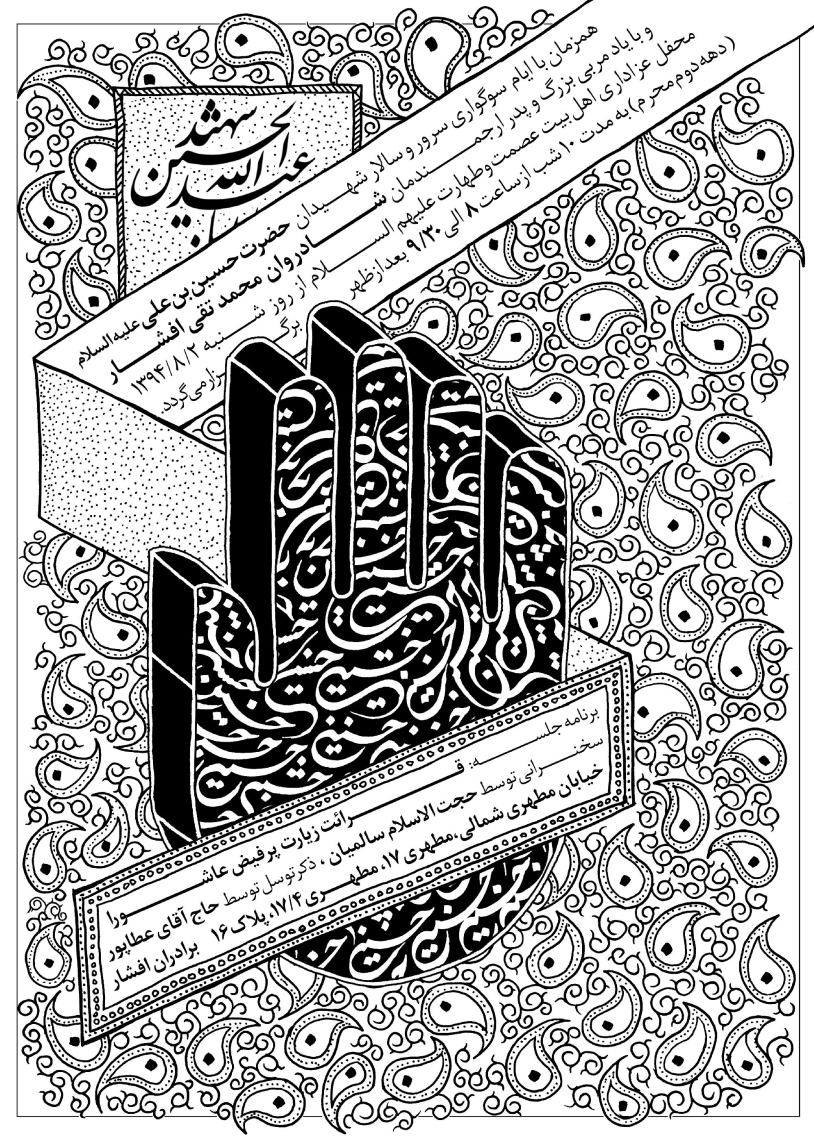 شهید
الحسین
عبدالله
همزمان با ایام سوگواری سرور و سالار شهیدان حضرت حسین بن علی علیه السلام
و با یاد مربی بزرگ و پدر ارجمندمان شادروان محمد تقی افشار
محفل عزاداری اهل بیت عصمت و طهارت علیهم السلام از روز شنبه ۱۳۹۴/۸/۲
(دهه دوم محرم) به مدت ۱۰ شب از ساعت ۸ الی ۹/۳۰ بعدازظهر برگزار می‌گردد.
حسین
برنامه جلسه: قرائت زیارت پرفیض عاشورا
سخنرانی توسط حجت الاسلام سالمیان ، ذکر توسل توسط حاج آقای عطاپور
خیابان مطهری شمالی، مطهری ۱۷، مطهری ۱۷/۴، پلاک ۱۶ برادران افشار